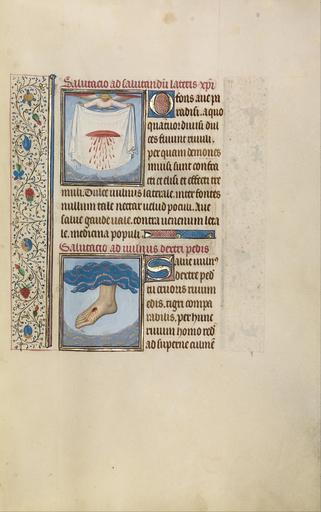 Salutacio ad salutandū lateris xpi
Fons aue pa
radisi, a quo
quatuor diuisi dul
ces fluunt riuuli,
per quam demones
inuisi, sunt confra
cti et elisi et effecti tre
muli. Dulce uulnus laterale, inter fontes
nullum tale nectar uelud poculi. Aue
salue gaude uale, contra uenenum leta
le, medicina populi.
Salutacio ad uulnus dextri pedis
Salue uulnꝰ
dextre ped
tu cruoris riuum
edis, tigri compa
rabilis, per hunc
riuum homo red
ad superne